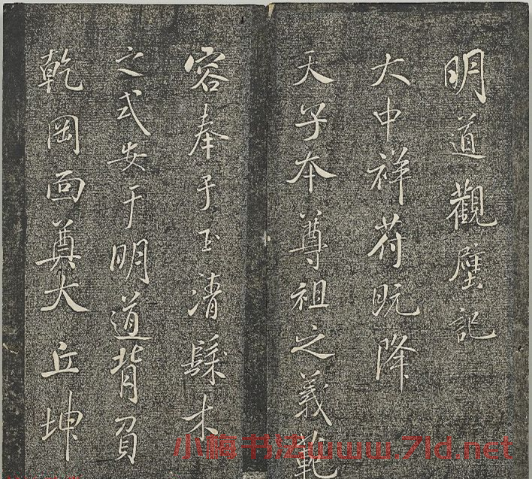 明道觀壁記
大中祥苻既降
天子夲尊祖之義範
容奉于玉清髹木
之式安于明道背負
乾岡面奠大丘坤
书法www.7ld.net